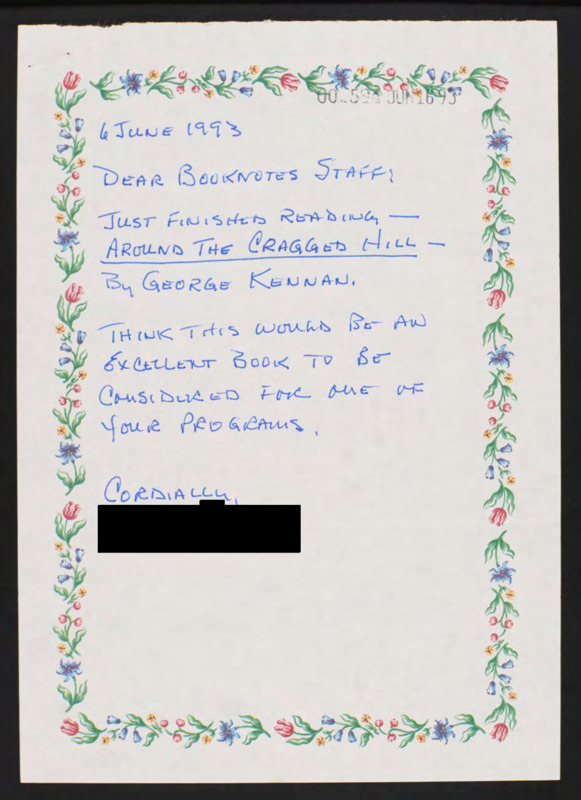 JUN 16 93
6 JUNE 1993
DEAR BOOKNOTES STAFF:
JUST FINISHED READING —
AROUND THE CRAGGED HILL —
By GEORGE KENNAN.
THINK THIS WOULD BE AN
EXCELLENT BOOK TO BE
CONSIDERED FOR ONE OF
YOUR PROGRAMS.
CORDIALLY,